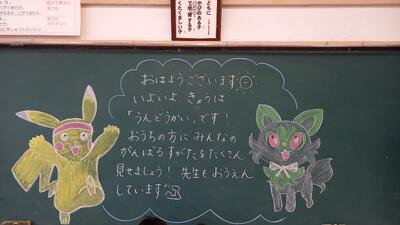 おはようございます
いよいよ きょうは
「うんどうかい」です!
おうちの方に みんなの
がんばる すがたを たくさん
見せましょう! 先生も おうえん
しています